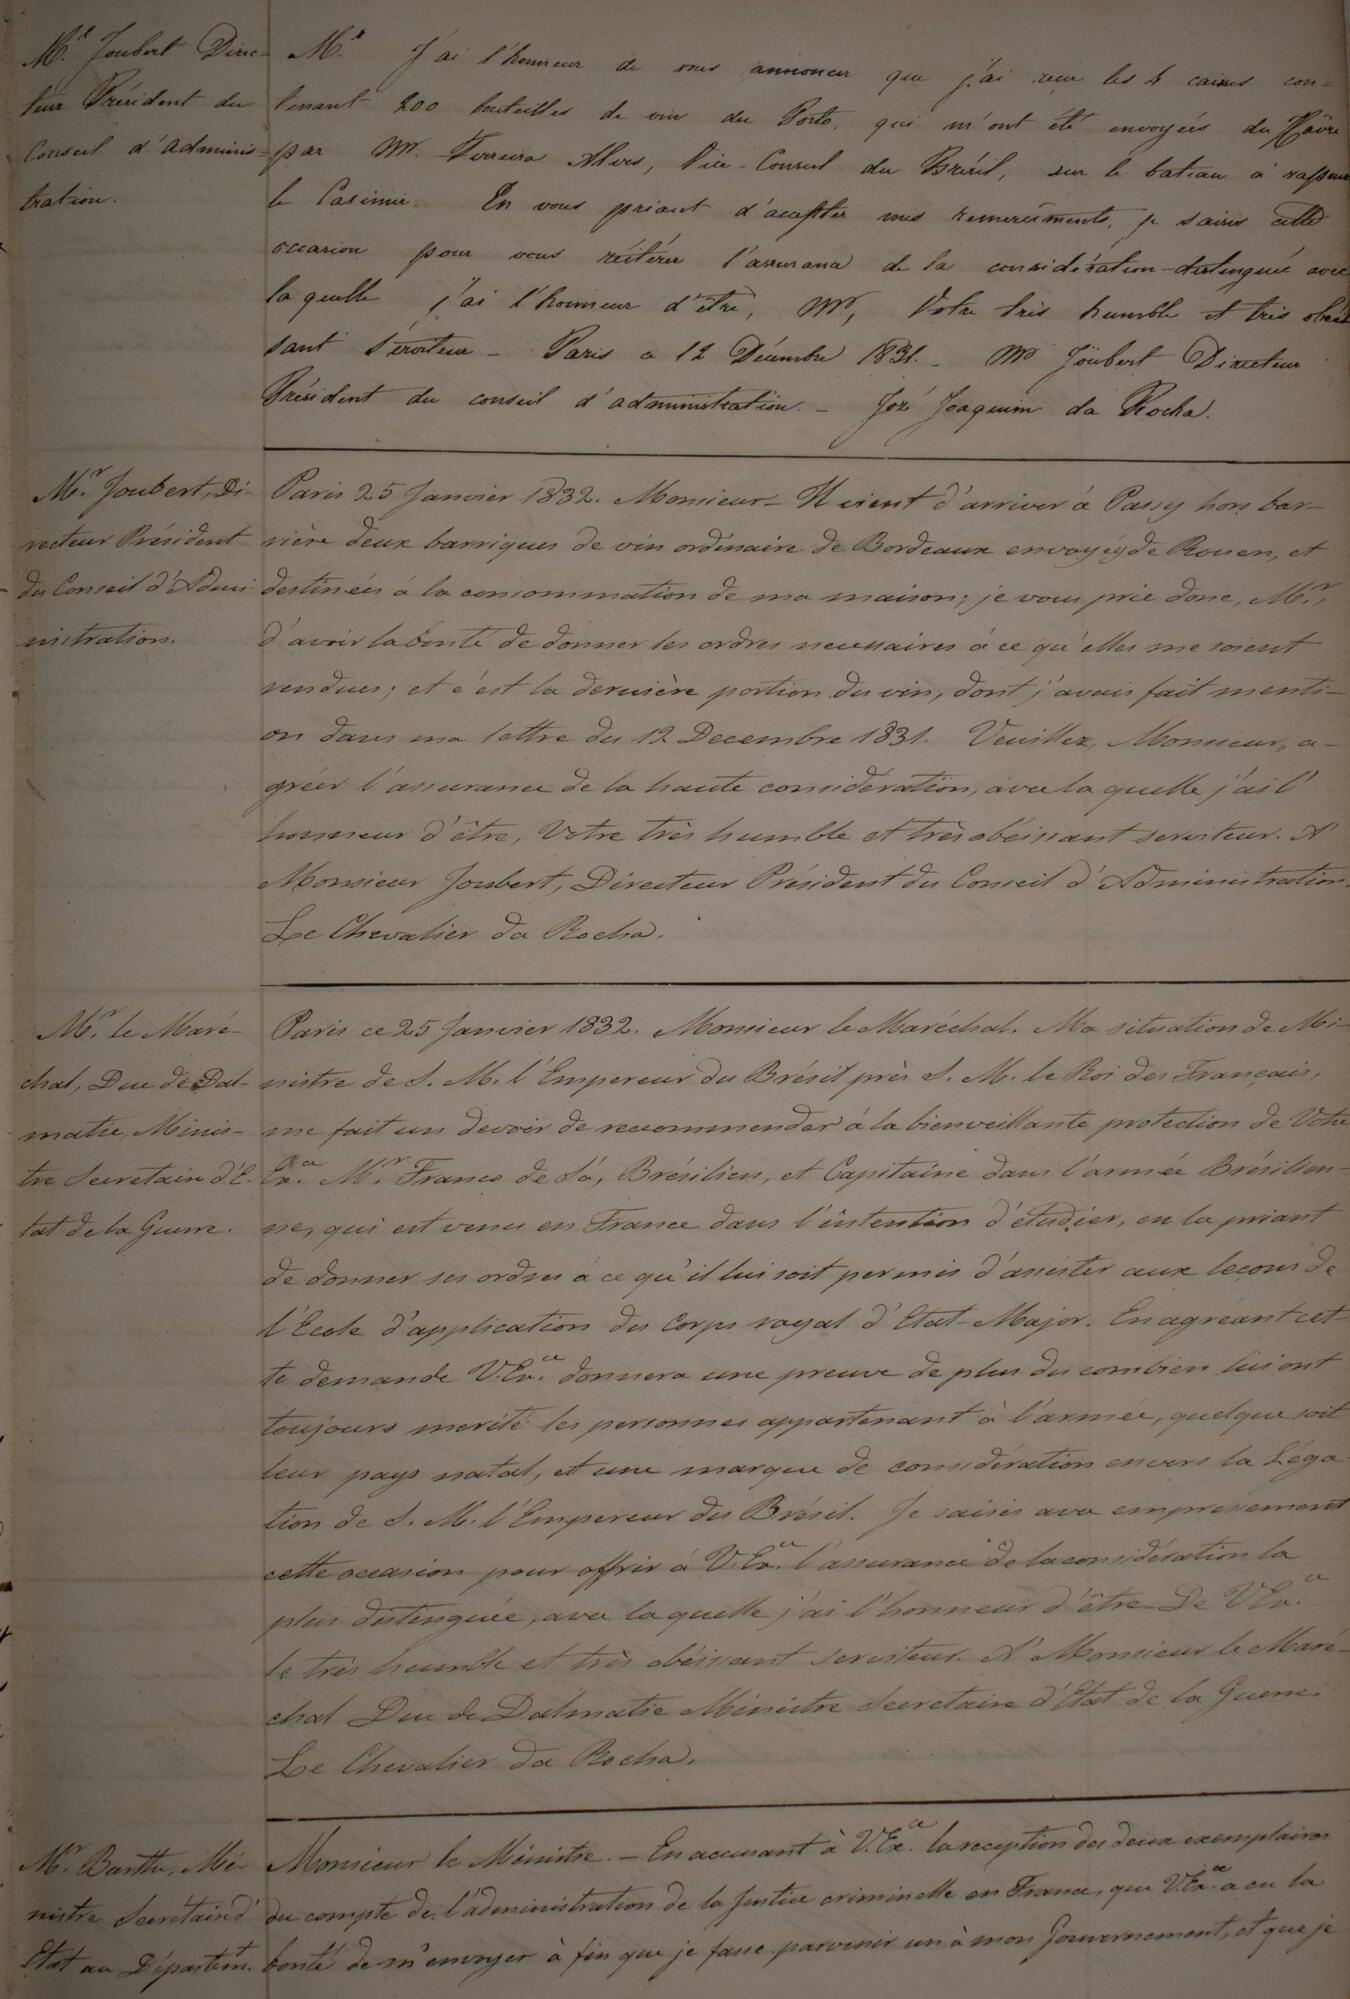 Mr. Joubert Direc-
teur Président du
Conseil d'Adminis-
tration.
Mr. J'ai l'honneur de vous annoncer que j'ai reçu les 4 caisses con-
tenant 200 bouteilles de vin du Porto, qui m'ont été envoyées du Hâvre
par Mr. Ferreira Alves, Vice-Consul du Brésil, sur le bateau à vapeur
le Casimir. En vous priant d'accepter mes remercîments, je saisis cette
occasion pour vous réitérer l'assurance de la considération distinguée avec
la quelle j'ai l'honneur d'être, Mr, Votre très humble et très obéis
sant sérviteur – Paris a 12 Décembre 1831. – Mr Joübert Directeur
Président du conseil d'administration. – José Joaquim da Rocha.
Mr. Joubert, Di-
recteur Président
du Conseil d'Admi-
nistration.
Paris 25 Janvier 1832. Monsieur – Il vient d'arriver à Passy hors bar-
rière deux barriques de vin ordinaire de Bordeaux envoyés de Rouen, et
destinées à la consommation de ma maison; je vous prie donc, Mr.,
d'avoir la bonté de donner les ordres necessaires à ce qu'elles me soient
rendues; et c'est la dernière portion du vin, dont j'avais fait menti-
on dans ma lettre du 12 Decembre 1831. Veuillez, Monsieur, a-
gréer l'assurance de la haute consideration, avec la quelle j'ai l'
honneur d'être, Votre très humble et très obéissant serviteur. A'
Monsieur Joubert, Directeur Président du Conseil d'Administration.
Le Chevalier da Rocha.
Mr. le Maré-
chal, Duc de Dal-
matie, Minis-
tre Secretaire d'E-
tat de la Guerre.
Paris ce 25 Janvier 1832. Monsieur le Maréchal. Ma situation de Mi-
nistre de S. M. l'Empereur du Brésil près S. M. le Roi des Français,
me fait un devoir de recommender à la bienveillante protection de Votre
Ex.ce Mr. Franco de Sá, Brésilien, et Capitaine dans l'armée Brésilien-
ne, qui est venu en France dans l'intention d'étudier, en la priant
de donner ses ordres à ce qu'il lui soit permis d'assister aux leçons de
l'Ecole d'application du Corps royal d'Etat-Major. En agréant cet-
te demande V. Ex.ce donnera une preuve de plus du combien lui ont
toujours merité les personnes appartenant à l'armée, quelque soit
leur pays natal, et une marque de considération envers la Léga
tion de S. M. l'Empereur du Brésil. Je saisis avec empressement
cette occasion pour offrir à V. Ex.ce l'assurance de la considération la
plus distinguée, avec la quelle j'ai l'honneur d'être De V Ex.ce
le très humble et très obéissant serviteur. A' Monsieur le Maré-
chal Duc de Dalmatie Ministre Secretaire d'Etat de la Guerre.
Le Chevalier da Rocha.
Mr. Barthe, Mi-
nistre Secrétaire d'
Etat au Départem.
Monsieur le Ministre. – En accusant à V. Ex.ce la reception des deux exemplaires
du compte de l'administration de la Justice criminelle en France, que V. Ex.ce a eu la
bonté de m'envoyer à fin que je fasse parvenir un à mon Gouvernement, et que je